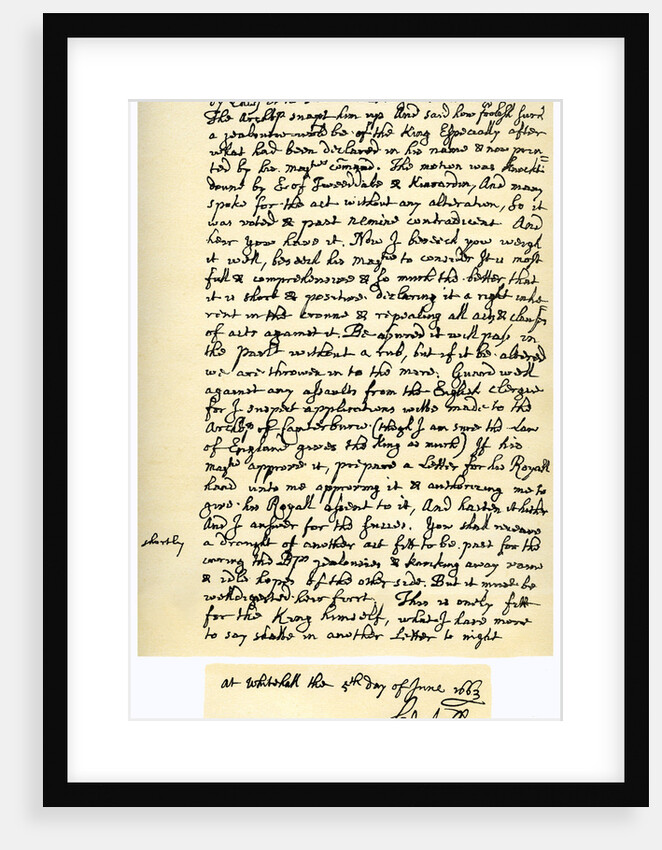 The Archbp snapt him up And said how foolish such
a jealousie wold be of the King Especially after
what had been declared in his name & now prin=
ted by his majties comand. The motion was knockt
doune by E. of Tweeddale & Kincardin, And many
spoke for the act without any alteration, So it
was voted & past nemine contradicent And
heir you have it. Now I beseech you weigh
it well, beseech his matie to consider It is most
full & comprehensive & so much the better that
it is short & positive declaring it a right inhe
rent in the croune & repealing all acts & clauses
of acts against it. Be assured it will pass in
the parlt without a rub, but if it be altered
we are throwen in to the mare. Guard well
against any assaults from the English clergie
for I suspect applications wilbe made to the
Archbp of Canterburie (thogh I am sure the Law
of England gives the King as much) If his
matie approve it, prepare a Letter for his Royall
hand unto me approving it & authorizing me to
give his Royall assent to it, And hasten it hither
And I answer for the success. You shall receave
shortly
a draught of another act fitt to be past for the
curing the Bps jealousies & taking away vaine
& idle hopes of the other side. But it must be
well digested heir first. This is onely fitt
for the King himself, what I have more
to say shalbe in another Letter to night
at Whitehall the 5th day of June 1663